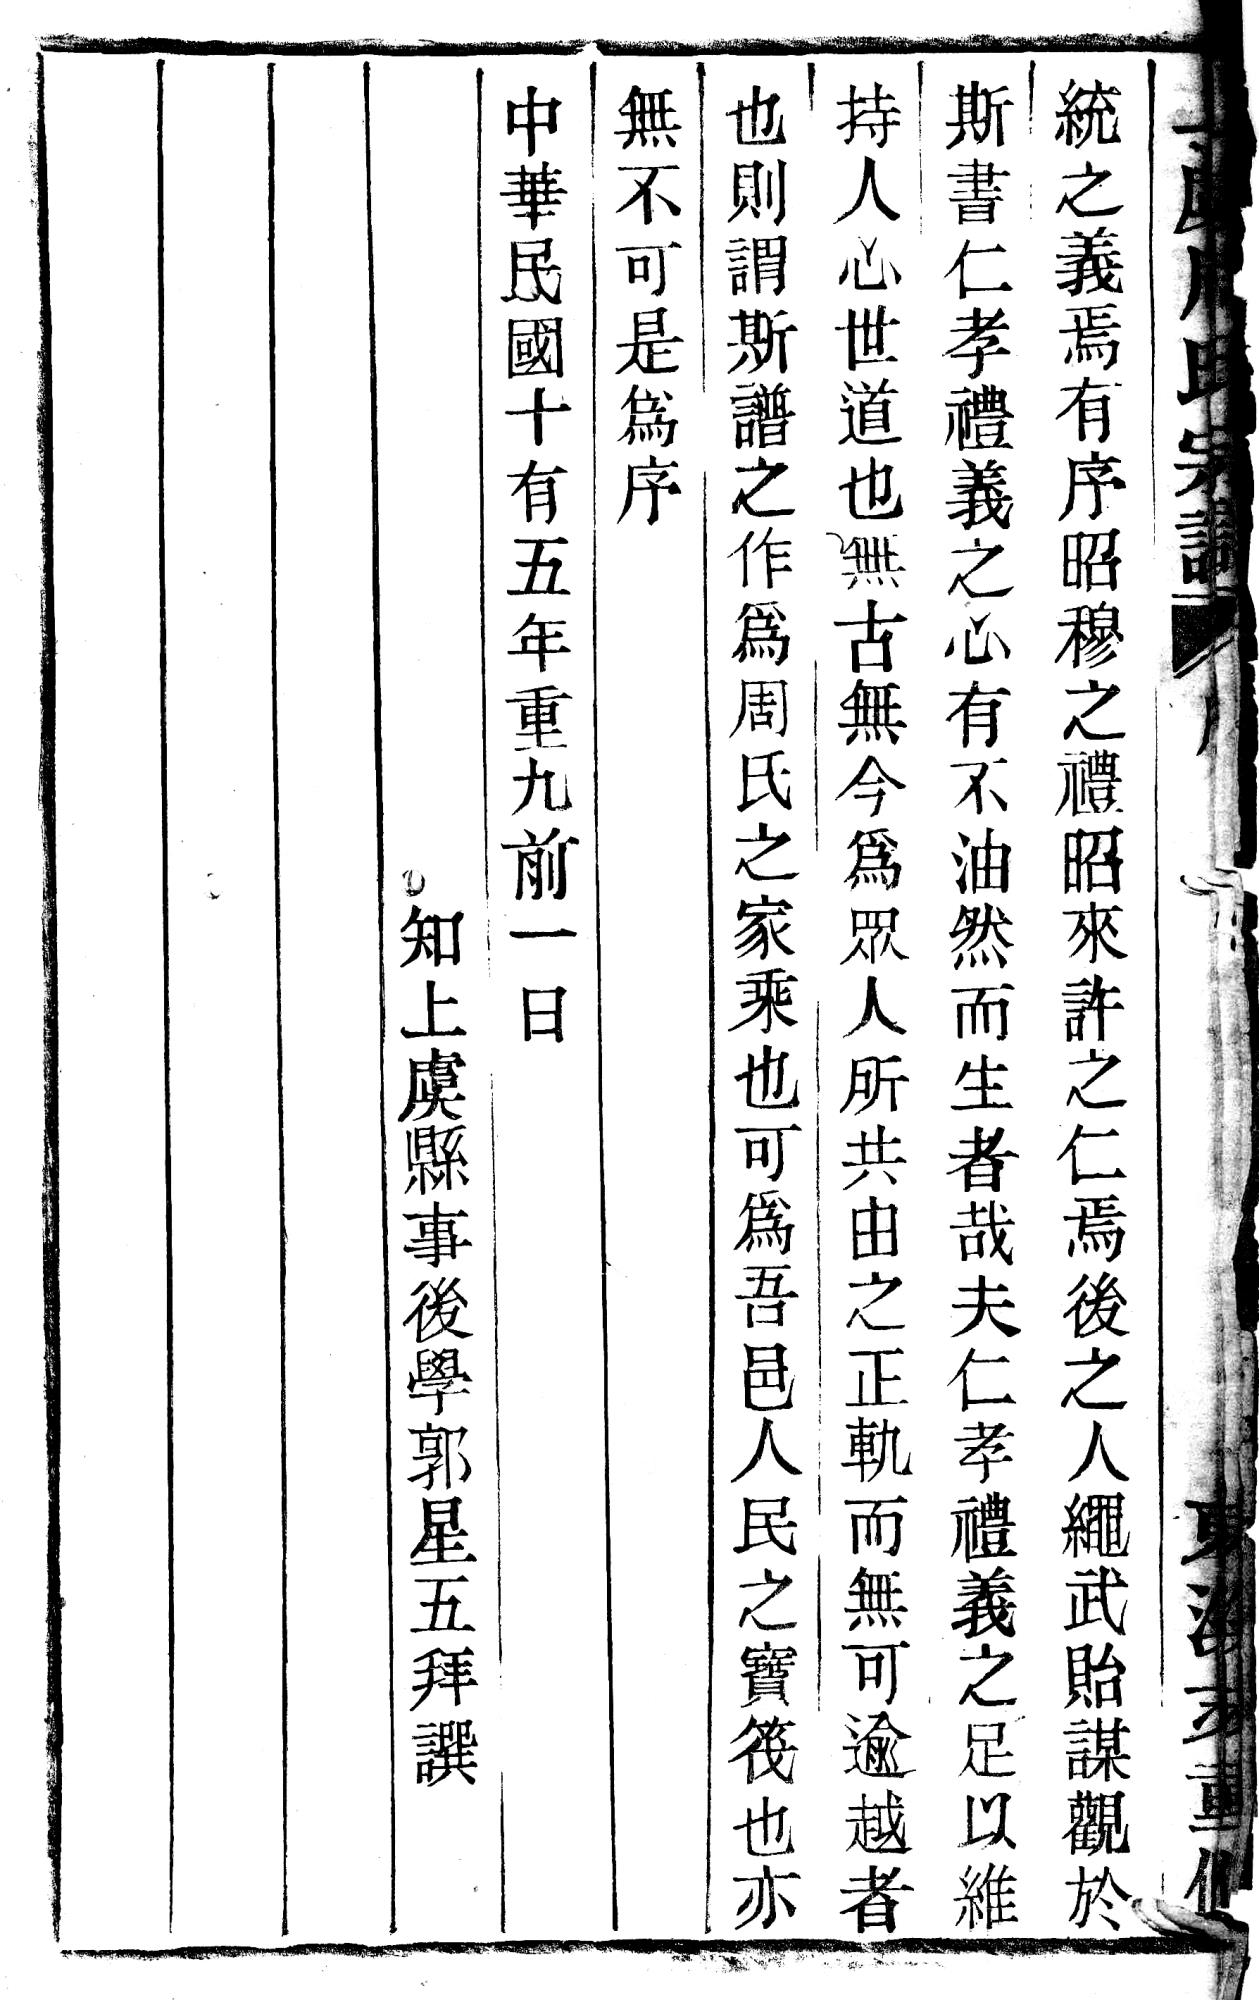 統之義焉有序昭穆之禮昭來許之仁焉後之人繩武貽謀觀於
斯書仁孝禮義之心有不油然而生者哉夫仁孝禮義之足以維
持人心世道也無古無今為眾人所共由之正軌而無可逾越者
也則謂斯譜之作為周氏之家乘也可為吾邑人民之寶筏也亦
無不可是為序
中華民國十有五年重九前一日
知上虞縣事後學郭星五拜譔